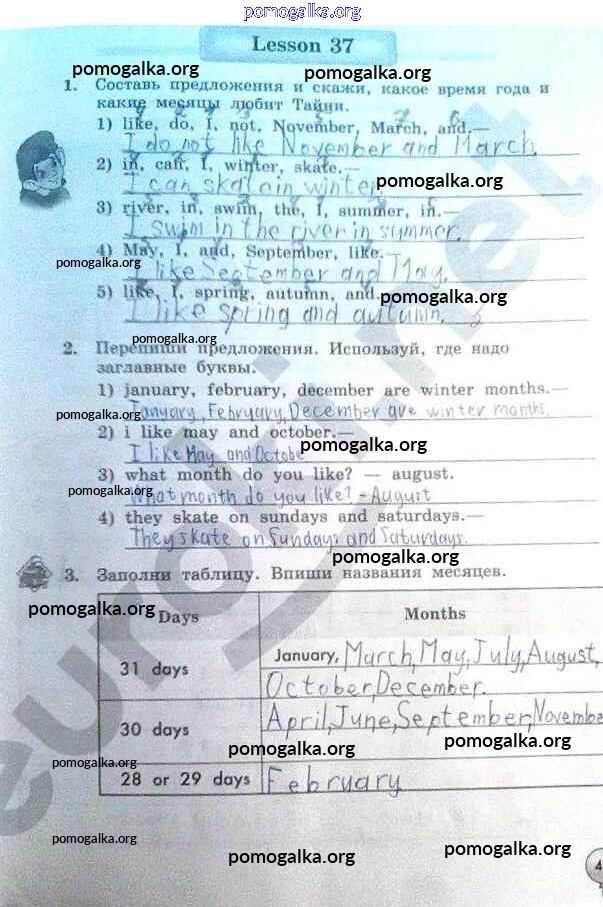 pomogalka.org
Lesson 37
pomogalka.org
pomogalka.org
1. Составь предложения и скажи, какое время года и
какие месяцы любит Тайни.
1) like, do, I, not, November, March, and.—
I do not like November and March.
2) in, can, I, winter, skate.—
I can skate in winter.
pomogalka.org
3) river, in, swim, the, I, summer, in.—
I swim in the river in summer.
4) May, I, and, September, like.—
pomogalka.org
I like September and May.
5) like, I, spring, autumn, and.
pomogalka.org
I like spring and autumn.
pomogalka.org
2. Перепиши предложения. Используй, где надо
заглавные буквы.
1) january, february, december are winter months.—
pomogalka.org
January, February, December are winter months.
2) i like may and october.—
pomogalka.org
I like May and Octobe
3) what month do you like? — august.
pomogalka.org
What month do you like? - August
4) they skate on sundays and saturdays.—
They skate on Sundays and Saturdays.
pomogalka.org
3. Заполни таблицу. Впиши названия месяцев.
pomogalka.org
Days Months
31 days January, March, May, July, August,
October, December.
30 days April, June, September, Novembe
pomogalka.org
pomogalka.org
pomogalka.org
28 or 29 days February
pomogalka.org
pomogalka.org
pomogalka.org
4